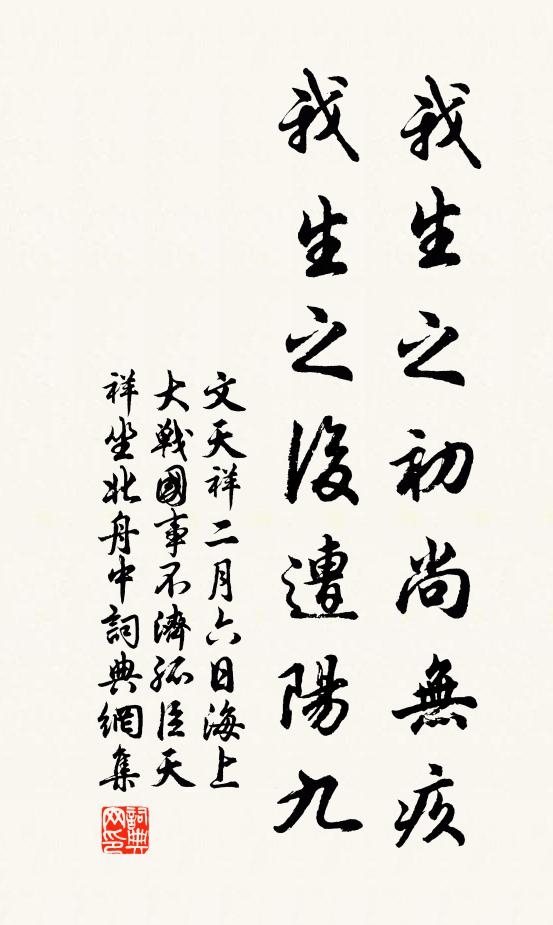 我生之初尚無疚
我生之後遭陽九
文天祥二月六日海上
大戰國事不濟孤臣天
祥坐北舟中詞典網集
詞典网印